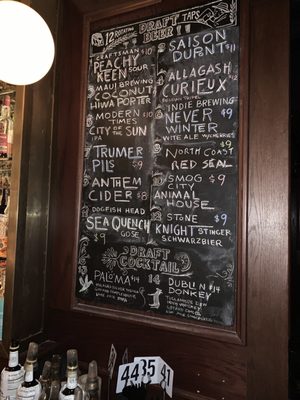 12 ROTATING DRAFT TAPS
DRAFT BEER!
CRAFTSMAN $10
PEACHY
KEEN SOUR
MAUI BREWING $9
COCONUT
HIWA PORTER
MODERN $10
TIMES
CITY OF THE SUN
IPA
TRUMER
PILS $9
ANTHEM
CIDER $8
DOGFISH HEAD
SEA QUENCH
GOSE
$9
SAISON
DUPONT $11
ALLAGASH $12
CURIEUX
INDIE BREWING
NEVER $9
WINTER
WITE ALE W/CHERRIES
$9
NORTH COAST
RED SEAL
SMOG $9
CITY
ANIMAL
HOUSE
STONE $9
KNIGHT STINGER
SCHWARZBIER
DRAFT
COCKTAIL
PALOMA $14
DUBLIN $14
DONKEY
4435 41